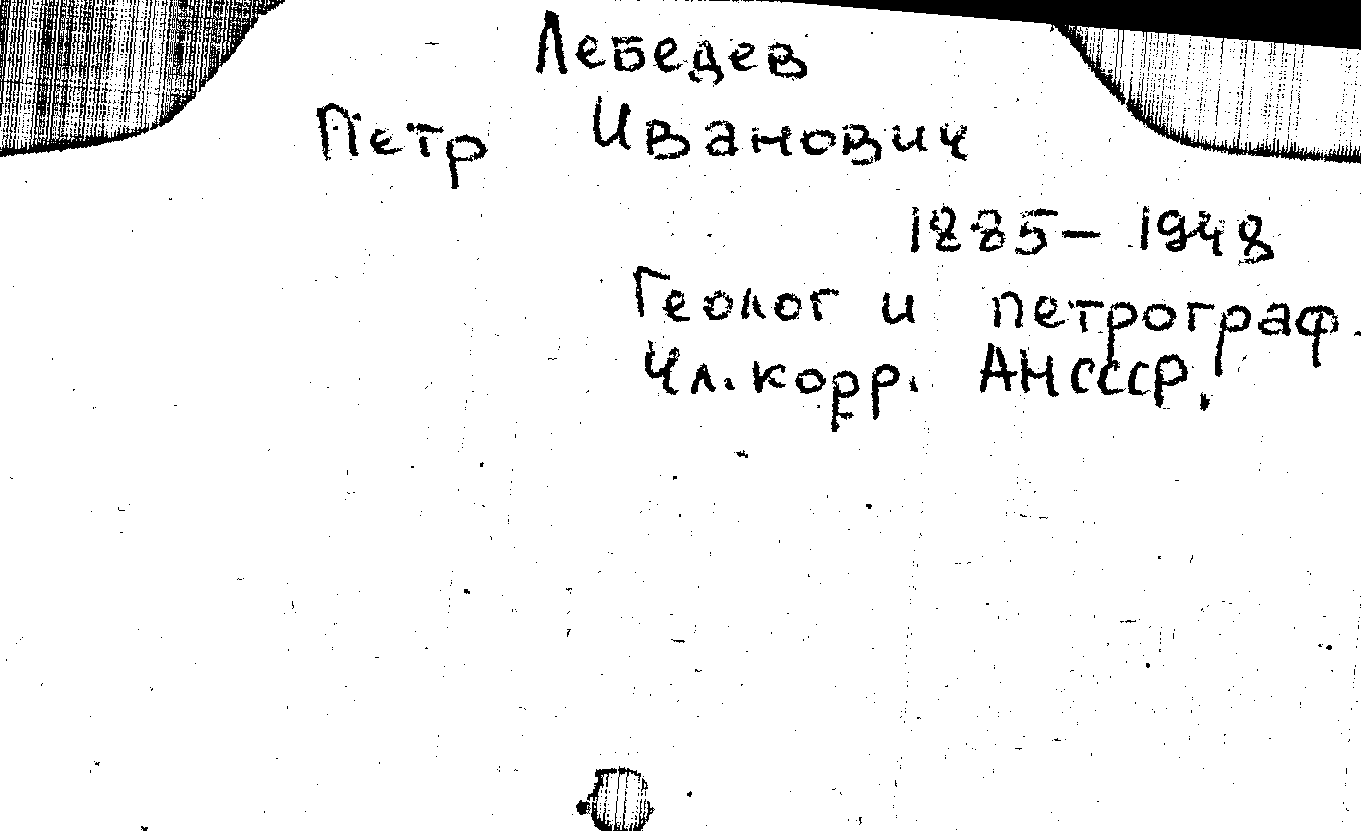 Лебедев
Петр Иванович
1885 – 1948
Геолог и петрограф.
Чл. корр. АН СССР.